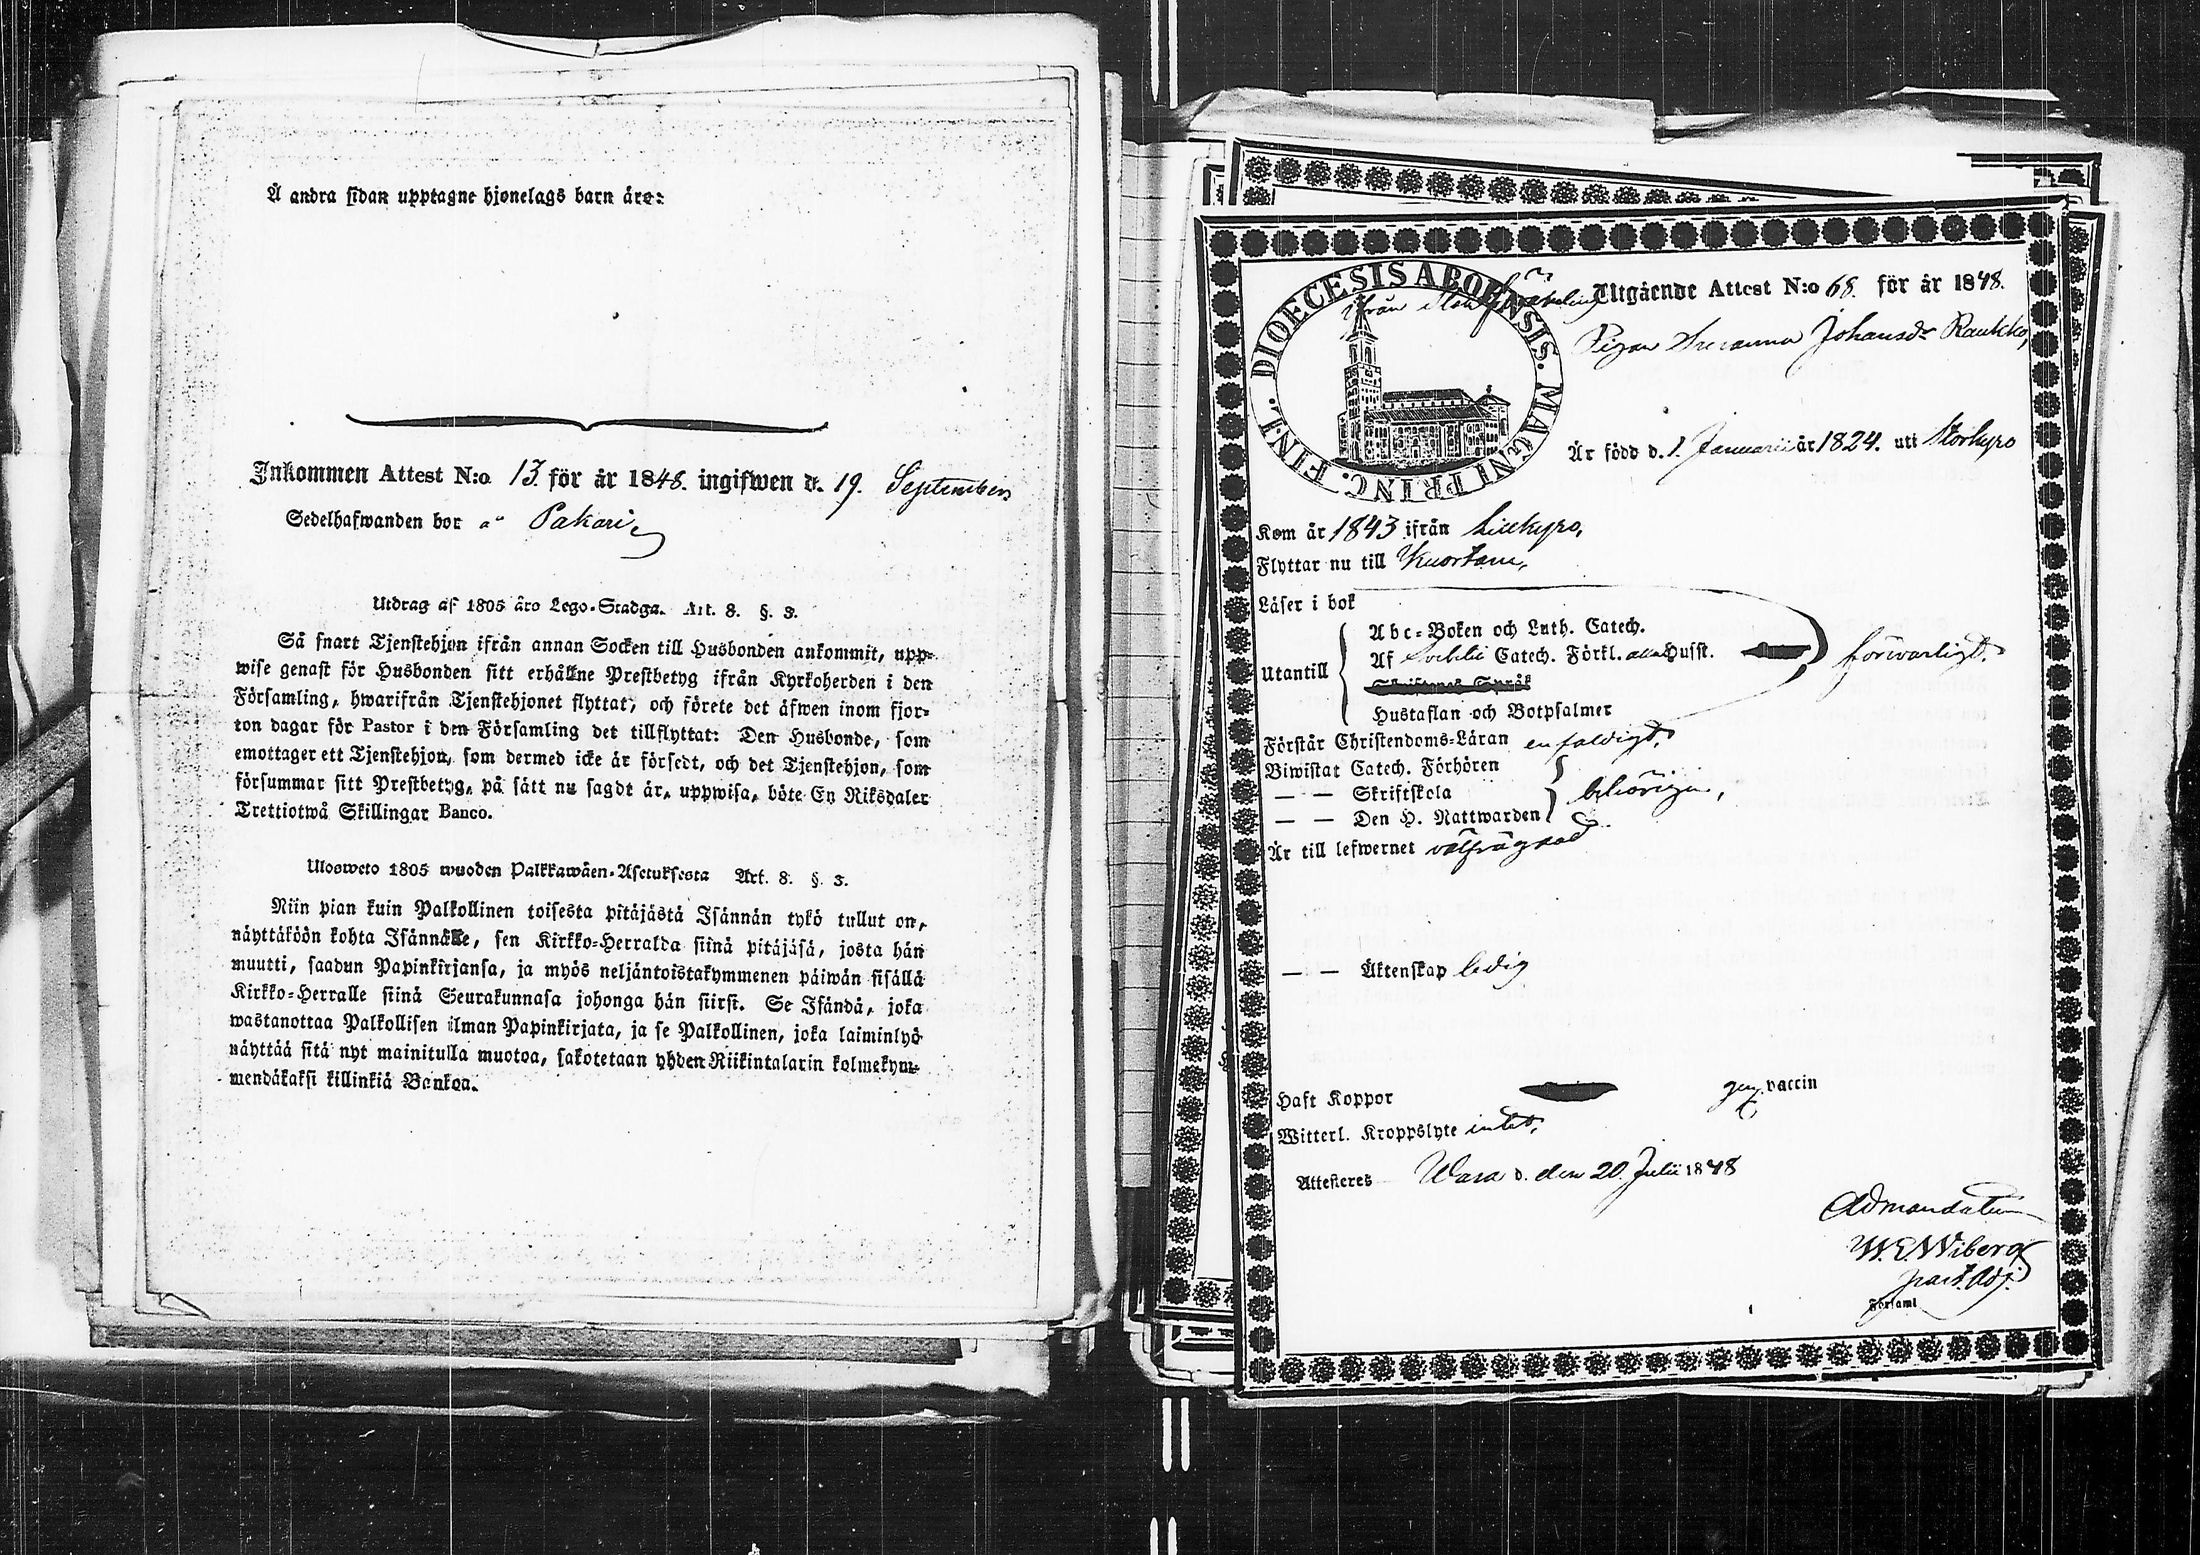 Å andra sidan upptagne hjonelags barn äro:
Inkommen Attest N:o 13. för år 1848. ingifwen d. 19. September
Sedelhafwanden bor å Pakari
Utdrag af 1805 års Lego-Stadga. Art. 8. §. 3.
Så snart Tjenstehjon ifrån annan Socken till Husbonden ankommit, upp-
wise genast för Husbonden sitt erhållne Prestbetyg ifrån Kyrkoherden i den
Församling, hwarifrån Tjenstehjonet flyttat, och förete det äfwen inom fjor-
ton dagar för Pastor i den Församling det tillflyttat: Den Husbonde, som
emottager ett Tjenstehjon, som dermed icke är försedt, och det Tjenstehjon, som
försummar sitt Prestbetyg, på sätt nu sagdt är, uppwisa, böte En Riksdaler
Trettiotwå Skillingar Banco.
Ulosweto 1805 wuoden Palkkawäen-Asetuksesta Art. 8. §. 3.
Niin pian kuin Palkollinen toisesta pitäjästä Isännän tykö tullut on,
näyttäköön kohta Isännälle, sen Kirkko-Herralda siinä pitäjäsä, josta hän
muutti, saadun Papinkirjansa, ja myös neljäntoistakymmenen päiwän sisällä
Kirkko-Herralle siinä Seurakunnasa johonga hän siirsi. Se Isändä, joka
wastanottaa Palkollisen ilman Papinkirjata, ja se Palkollinen, joka laiminlyö
näyttää sitä nyt mainitulla muotoa, sakotetaan yhden Riikintalarin kolmekym-
mendäkaksi killinkiä Bankoa.
DIOECESIS ABOENSIS. MAGNI PRINC. FINL.
Utgående Attest N:o 68. för år 1848.
ifrån
Pigan Susanna Johansdr Raukko,
Är född d. 1. Januarii år 1824. uti Storkyro
Kom år 1843 ifrån Lillkyro,
Flyttar nu till Kuortane,
Läser i bok
Abc-Boken och Luth. Catech.
Utantill Af Svebilii Catech. Förkl. Husst. förswarligt.
Skriftenes Språk
Hustaflan och Botpsalmer
Förstår Christendoms-Läran enfaldigt,
Biwistat Catech. Förhören
— — Skriftskola behörigen,
— — Den H. Nattwarden
Är till lefwernet välfrägdad
— — Äktenskap ledig
Haft Koppor gen. vaccin
Witterl. Kroppslyte intet,
Attesteres Wasa d. den 20. Julii 1848
Ad mandatum
W. E. Wiberg
past. Adj.
Församl